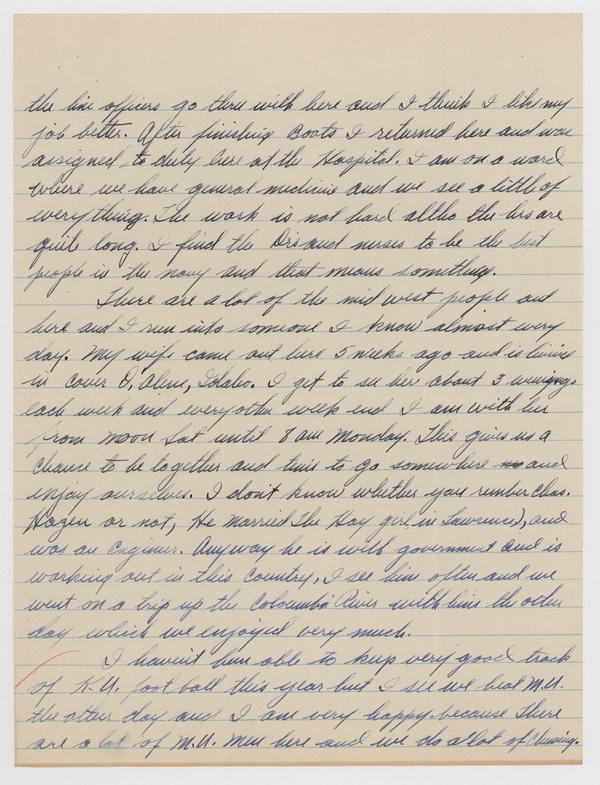 the line officers go thru with here and I think I like my
job better. After finishing Boots I returned here and was
assigned to duty here at the Hospital. I am on a ward
where we have general medicine and we see a little of
everything. The work is not hard altho the hrs are
quite long. I find the Drs and nurses to be the best
people in the navy and that means something.
There are a lot of the mid west people out
here and I run into someone I know almost every
day. My wife came out here 5 weeks ago and is living
in Coeur D, Alene, Idaho. I get to see her about 3 evenings
each week and every other week end I am with her
from noon Sat until 8 am Monday. This gives us a
chance to be together and time to go somewhere and
enjoy ourselves. I don't know whether you rember Chas.
Hazen or not, He married The Hoy girl in Lawrence), and
was an Enginer. Anyway he is with government and is
working out in this country, I see him often and we
went on a trip up the Coloumbia River with him the other
day which we enjoyed very much.
I havent been able to keep very good track
of K.U. foot ball this year but I see we beat M.U.
the other day and I am very happy because There
are a lot of M.U. men here and we do a lot of Chewing.